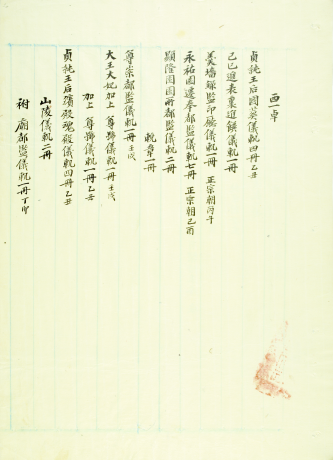 西一卓
貞純王后國葬儀軌四冊 乙丑
己巳進表裏進饌儀軌一冊
羹墻錄監印廳儀軌一冊 正宗朝丙午
永祐園遷奉都監儀軌七冊 正宗朝己酉
顯隆園園所都監儀軌二冊
軌章一冊
尊崇都監儀軌一冊 壬戌
大王大妃加上尊號儀軌一冊 壬戌
加上尊號儀軌一冊 乙亥
貞純王后殯殿魂殿儀軌四冊 乙丑
山陵儀軌二冊
祔廟都監儀軌一冊 丁卯